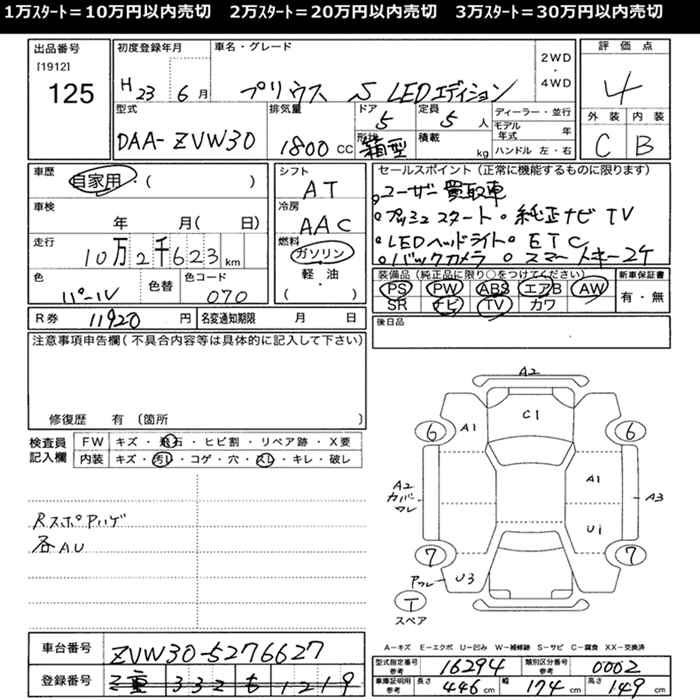 1万スタート＝10万円以内売切　2万スタート＝20万円以内売切　3万スタート＝30万円以内売切
出品番号 初度登録年月 車名・グレード 2WD・4WD 評価点
[1912]
125 H23 6月 プリウス S LEDエディション 4
型式 排気量 ドア 定員 ディーラー・並行 外装 内装
DAA-ZVW30 1800cc 5 5人 モデル年式 年 C B
形状 箱型 積載 kg ハンドル 左・右
車歴 自家用・( ) シフト AT セールスポイント（正常に機能するものに限ります）
車検 年 月( 日) 冷房 AAC
。ユーザー買取車
。プッシュスタート。純正ナビTV
走行 10万2千623km 燃料 ガソリン 軽・油 ( )
。LEDヘッドライト。ETC
。バックカメラ。スマートキー2ケ
色 パール 色替 色コード 070
装備品（純正品に限り○をつけてください） 新車保証書
PS PW ABS エアB AW 有・無
SR ナビ TV カワ
R券 11920円 名変通知期限 月 日 後日品
注意事項申告欄（不具合内容等は具体的に記入して下さい）
修復歴 有（箇所
検査員記入欄 FW キズ・飛石・ヒビ割・リペア跡・X要
内装 キズ・汚レ・コゲ・穴・スレ・キレ・破レ
A2
C1
6 A1 6
A1
A2 カバーワレ A3
U1
Rスポアハゲ
各AU
7 7
U3
T
スペア
A－キズ E－エクボ U－凹み W－補修跡 S－サビ C－腐食 XX－交換済
車台番号 ZVW30-5276627
型式指定番号 参考 16294 類別区分番号 参考 0002
登録番号 三重 332 も 1219
車庫証明用 参考 長さ 446cm 幅 174cm 高さ 149cm